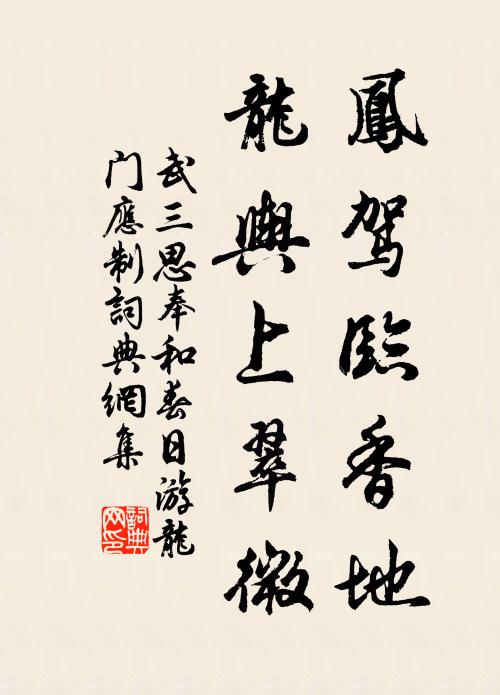 鳳駕臨香地
龍輿上翠微
武三思奉和春日游龍
门應制詞典網集
詞典
网印